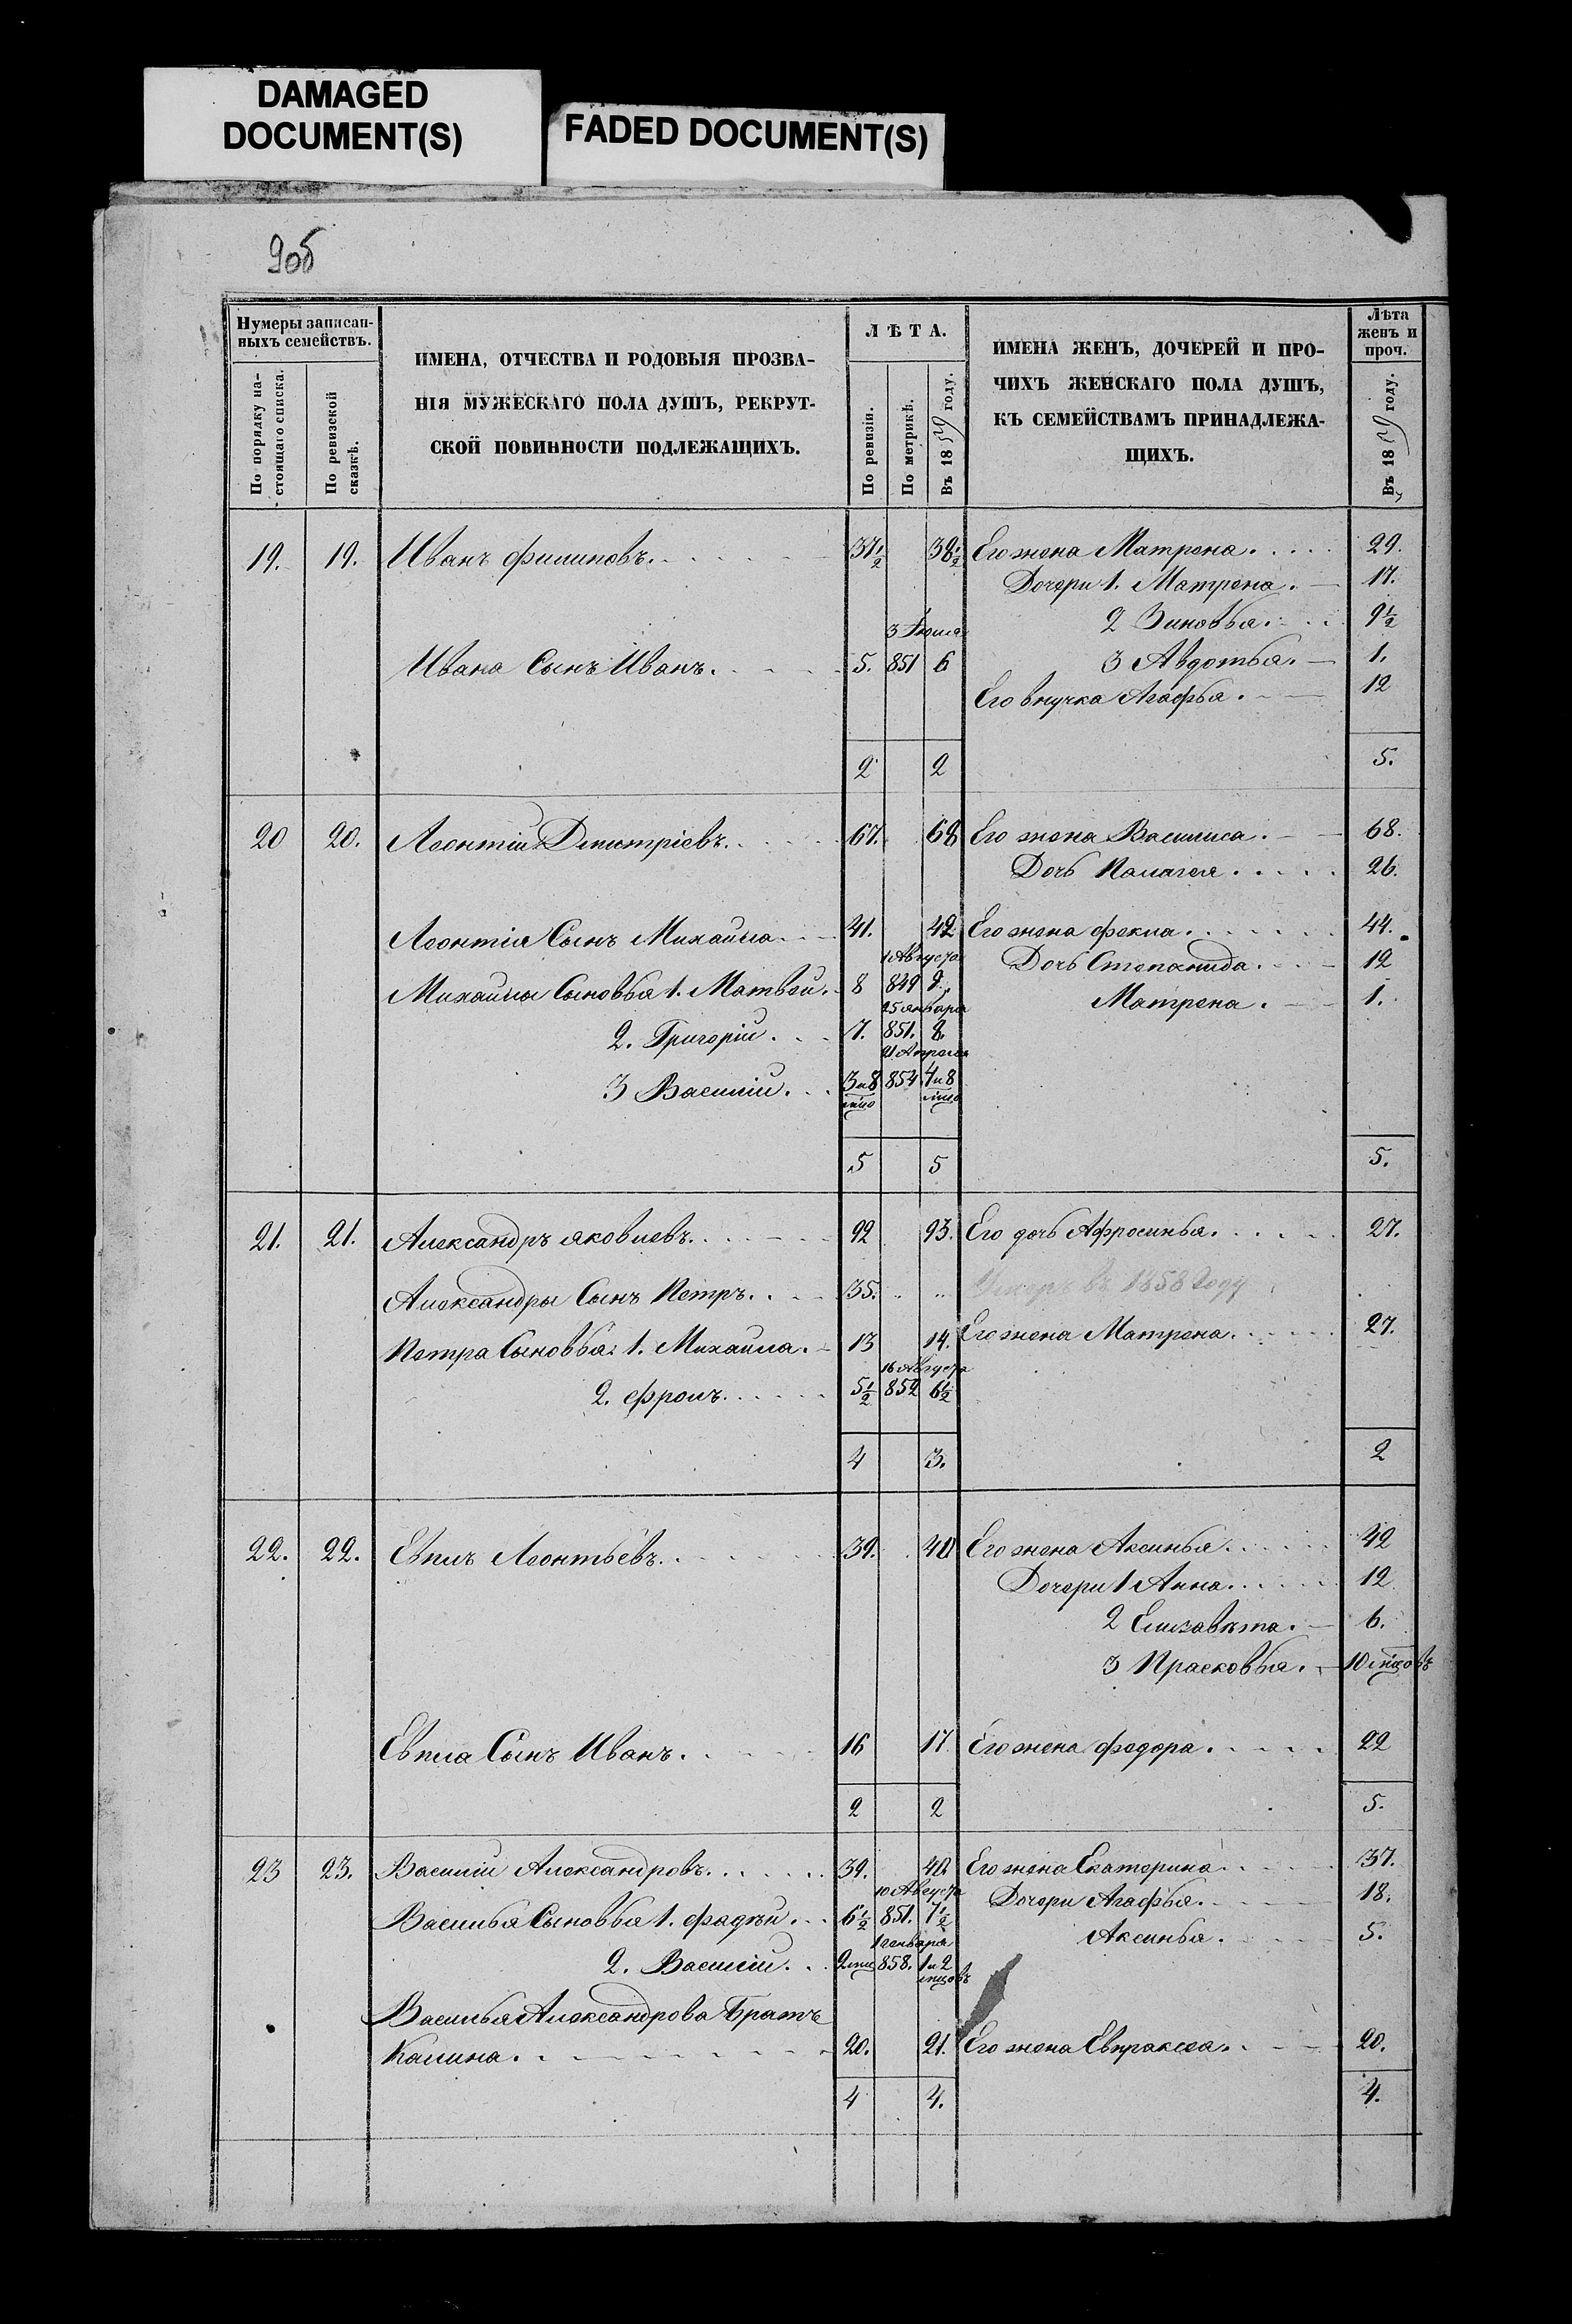 DAMAGED
DOCUMENT(S)
FADED DOCUMENT(S)
9об
Нумеры записан-
ныхъ семействъ.
По порядку на-
стоящаго списка.
По ревизской
сказкѣ.
ИМЕНА, ОТЧЕСТВА И РОДОВЫЯ ПРОЗВА-
НІЯ МУЖЕСКАГО ПОЛА ДУШЪ, РЕКРУТ-
СКОЙ ПОВИННОСТИ ПОДЛЕЖАЩИХЪ.
ЛѢТА.
По ревизіи.
По метрикѣ.
Въ 1859 году.
ИМЕНА ЖЕНЪ, ДОЧЕРЕЙ И ПРО-
ЧИХЪ ЖЕНСКАГО ПОЛА ДУШЪ,
КЪ СЕМЕЙСТВАМЪ ПРИНАДЛЕЖА-
ЩИХЪ.
Лѣта
женъ и
проч.
Въ 1859 году.
19. 19. Иванъ Филиповъ. 37½ 38½ Его жена Матрена. 29.
Дочери 1. Матрена. 17.
2 Зиновья. 9½
3 Іюля
Ивана Сынъ Иванъ. 5. 851 6 3 Авдотья. 1.
Его внучка Агафья. 12
2 2 5.
20 20. Леонтій Дмитріевъ. 67. 68 Его жена Василиса. 68.
Дочь Палагея. 26.
Леонтія Сынъ Михайла 41. 42 Его жена Фекла. 44.
1 Августа
Дочь Степанида. 12
Михайлы Сыновья 1. Матвей. 8 849 9. Матрена. 1.
25 января
2. Григорій. 7. 851. 8.
21 Апреля
3 Василій. 3 и 8 854 4 и 8
5 5 5.
21. 21. Александръ яковлевъ. 92 93. Его дочь Афросинья. 27.
Александры Сынъ Петръ. 35. Умеръ въ 1858 году
Петра Сыновья: 1. Михайла. 13 14. Его жена Матрена. 27.
16 Августа
2. Фролъ. 5½ 852 6½
4 3. 2
22. 22. Евплъ Леонтьевъ. 39. 40 Его жена Аксинья. 42
Дочери 1 Анна. 12
2 Елизавѣта. 6.
3 Прасковья. 10 мѣсцовъ
Евпла Сынъ Иванъ. 16 17 Его жена Федора. 22
2 2 5.
23 23. Василій Александровъ. 39. 40. Его жена Екатерина. 37.
10 Августа
Дочери Агафья. 18.
Василья Сыновья 1. Фадѣй. 6½ 851. 7½
1 генваря
Аксинья. 5.
2. Василій. 2 мѣс 858. 1 и 2
мѣсцовъ
Василья Александрова Братъ
Калина. 20. 21. Его жена Евпраксея. 20.
4 4. 4.